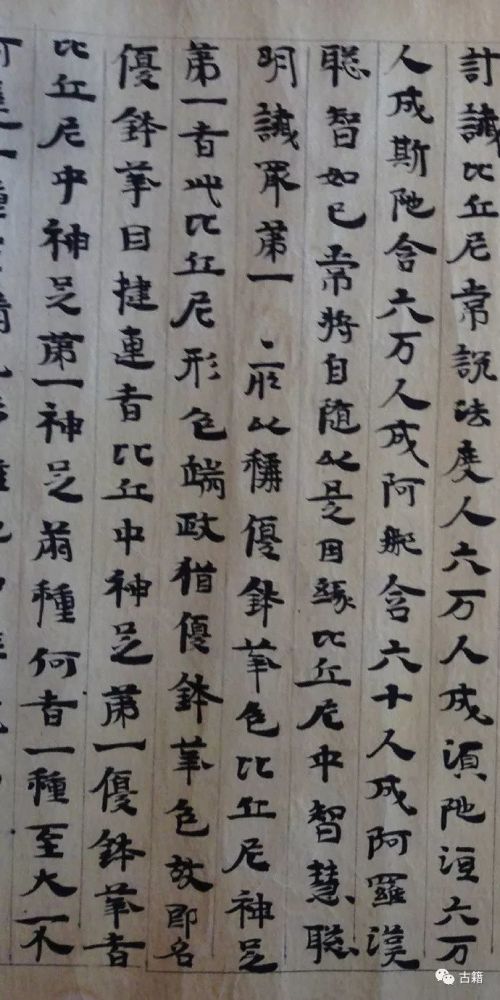 計讖比丘尼常說法度人六万人成湏陁洹六万
人成斯陁含六万人成阿那含六十人成阿羅漢
聡智如已常將自隨以是因緣比丘尼中智慧聡
明識眾第一 所以稱優鉢華色比丘尼神足
第一者此比丘尼形色端政猶優鉢華色故即名
優鉢華目揵連者比丘中神足第一優鉢華者
比丘尼中神足第一神足兩種何者一種至大一不
古籍